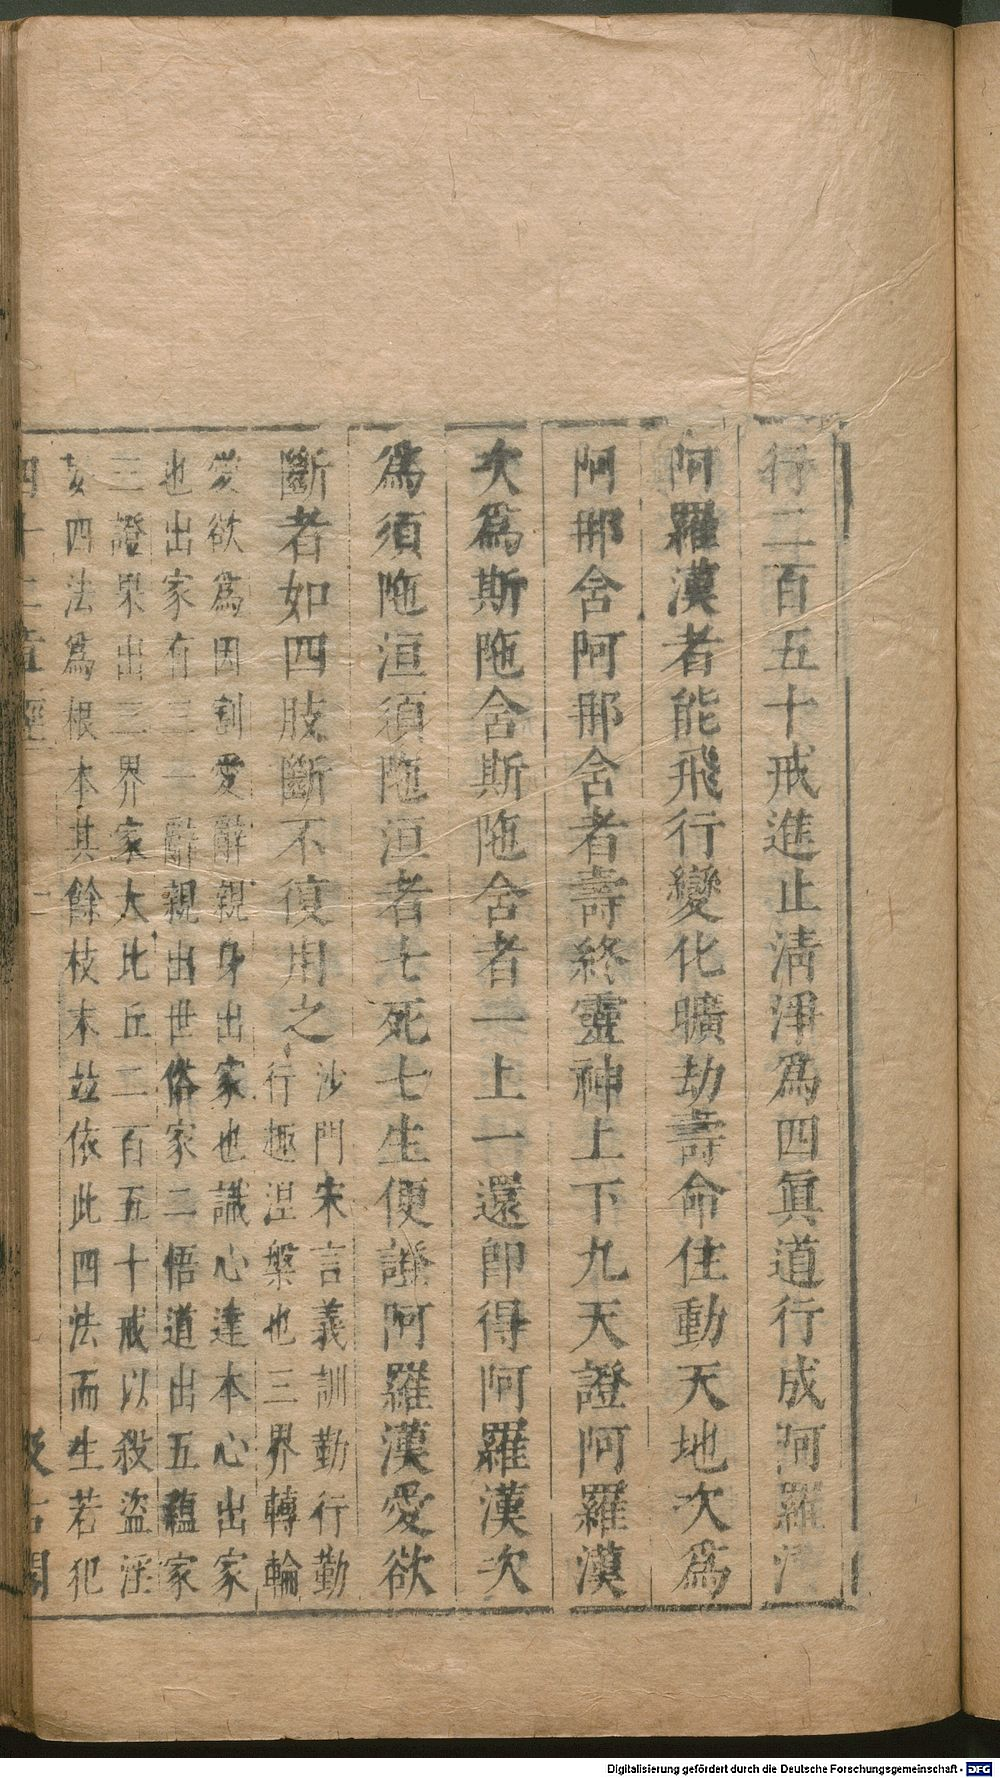 行二百五十戒進止清淨爲四眞道行成阿羅漢
阿羅漢者能飛行變化曠劫壽命住動天地次爲
阿那舍阿那舍者壽終靈神上下九天證阿羅漢
次爲斯陁舍斯陁舍者一上一還卽得阿羅漢次
爲須陁洹須陁洹者七死七生便證阿羅漢愛欲
斷者如四肢斷不復用之
沙門宋言義訓勤行勤
行趣涅槃也三界轉輪
愛欲爲因割愛辭親身出家也識心達本心出家
也出家有三一辭親出世俗家二悟道出五蘊家
三證果出三界家大比丘二百五十戒以殺盜淫
妄四法爲根本其餘枝末並依此四法而生若犯
四十二章經
二
汲古閣
Digitalisierung gefördert durch die Deutsche Forschungsgemeinschaft - DFG